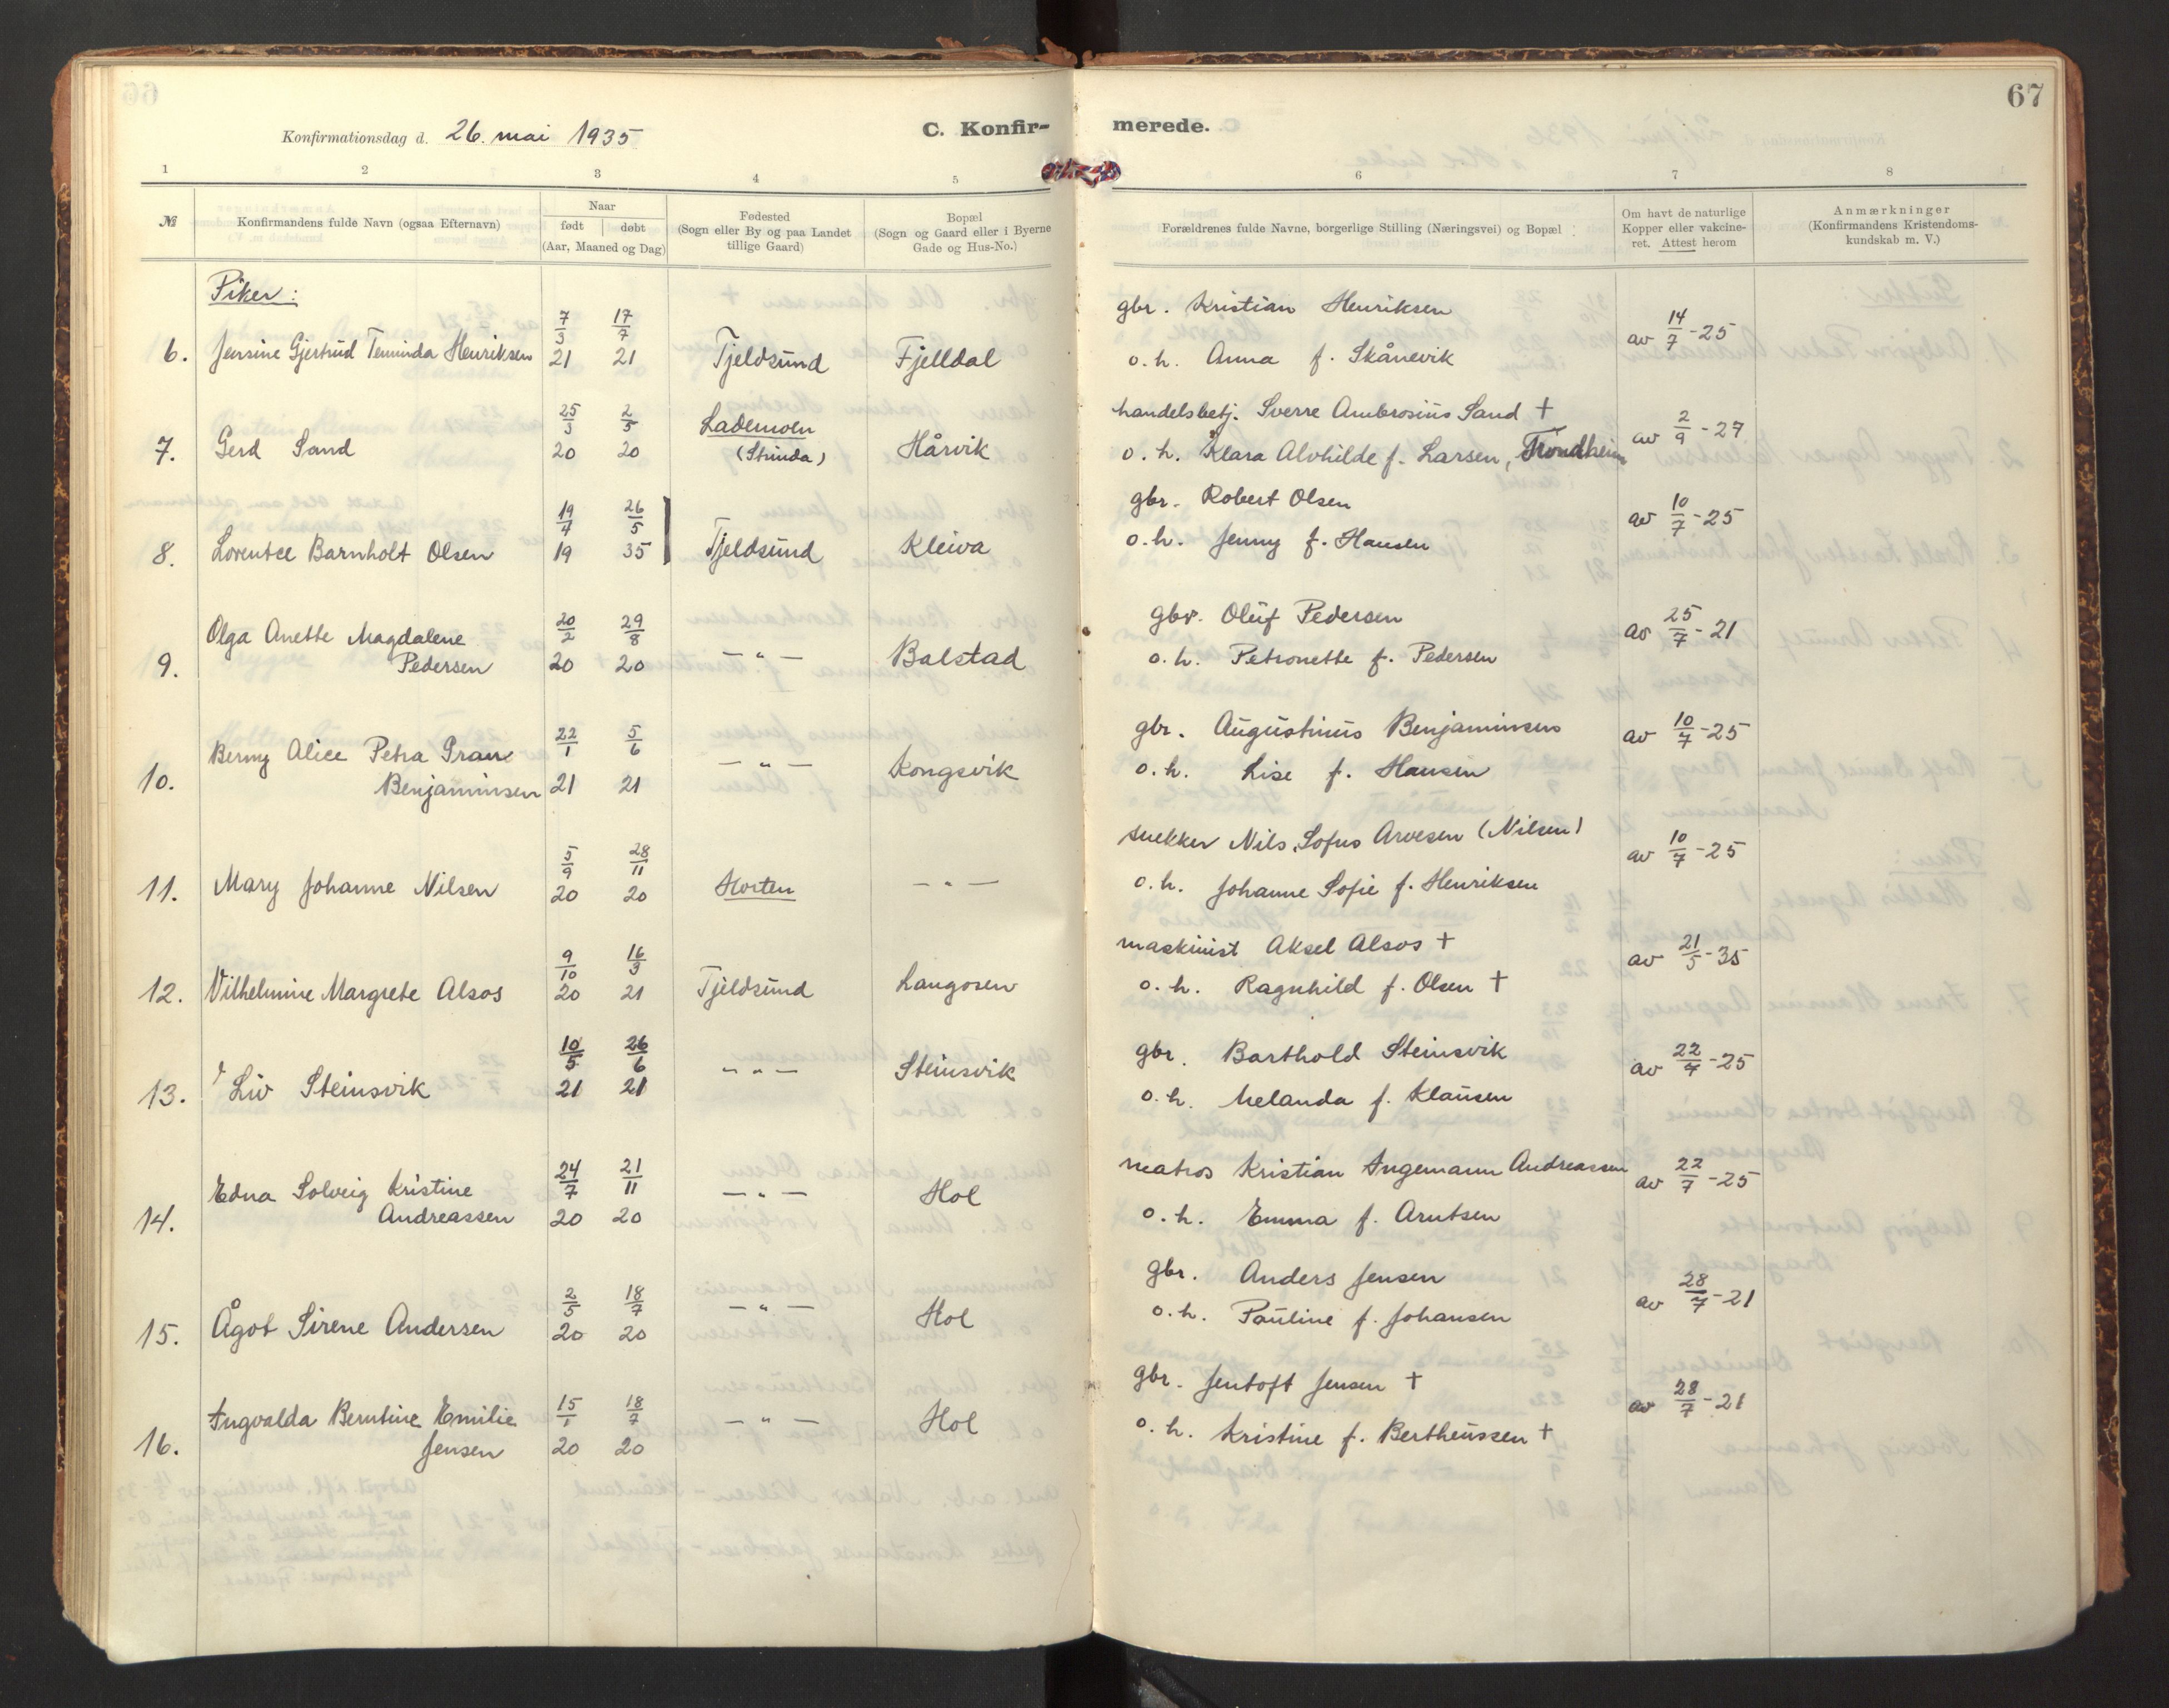 67
Konfirmationsdag d. 26. mai 1935
C. Konfir-
merede.
1 2 3 4 5 6 7 8
№
Konfirmandens fulde Navn (ogsaa Efternavn)
Naar
født døbt
(Aar, Maaned og Dag)
Fødested
(Sogn eller By og paa Landet
tillige Gaard)
Bopæl
(Sogn og Gaard eller i Byerne
Gade og Hus-No.)
Forældrenes fulde Navne, borgerlige Stilling (Næringsvei) og Bopæl
Om havt de naturlige
Kopper eller vakcine-
ret. Attest herom
Anmærkninger
(Konfirmandens Kristendoms-
kundskab m. V.)
Piker:
7/3 17/7 gbr. Kristian Henriksen av 14/7-25
6. Jensine Gjertrud Henriksen 21 21 Tjeldsund Fjelldal o. h. Anna f. Skånevik
25/3 2/5 Lademoen handelsbetj. Sverre Ambrosius Sand + av 2/9-27
7. Gerd Sand 20 20 (Strinda) Hårvik o. h. Klara Alvhilde f. Larsen, Trondheim
19/4 26/5 gbr. Robert Olsen av 10/7-25
8. Lorentze Barnholt Olsen 19 35 Tjeldsund Kleiva o. h. Jenny f. Hansen
Olga Anette Magdalene 20/2 29/8 gbr. Oluf Pedersen av 25/7-21
9. Pedersen 20 20 —„— Balstad o. h. Petronette f. Pedersen
Berny Alice Petra 22/1 5/6 —„— gbr. Augustinus Benjaminsen av 10/7-25
10. Benjaminsen 21 21 Kongsvik o. h. Lise f. Hansen
5/9 28/11 snekker Nils Sofus Arvesen (Nilsen) av 10/7-25
11. Mary Johanne Nilsen 20 20 Horten —„— o. h. Johanne Sofie f. Henriksen
9/10 16/3 maskinist Aksel Alsos + av 21/5-35
12. Vilhelmine Margrete Alsos 20 21 Tjeldsund Langosen o. h. Ragnhild f. Olsen +
10/5 26/6 —„— Steinsvik gbr. Barthold Steinsvik av 22/7-25
13. Liv Steinsvik 21 21 o. h. Melanda f. Klausen
Edna Solveig Kristine 24/7 21/11 —„— Hol matros Kristian Ingemann Andreassen av 22/7-25
14. Andreassen 20 20 o. h. Emma f. Arntsen
2/5 18/7 —„— gbr. Anders Jensen av 28/7-21
15. Ågot Sirene Andersen 20 20 Hol o. h. Pauline f. Johansen
Ingvalda Berntine Emilie 15/1 18/7 —„— Hol gbr. Jentoft Jensen + av 28/7-21
16. Jensen 20 20 o. h. Kristine f. Bertheussen +